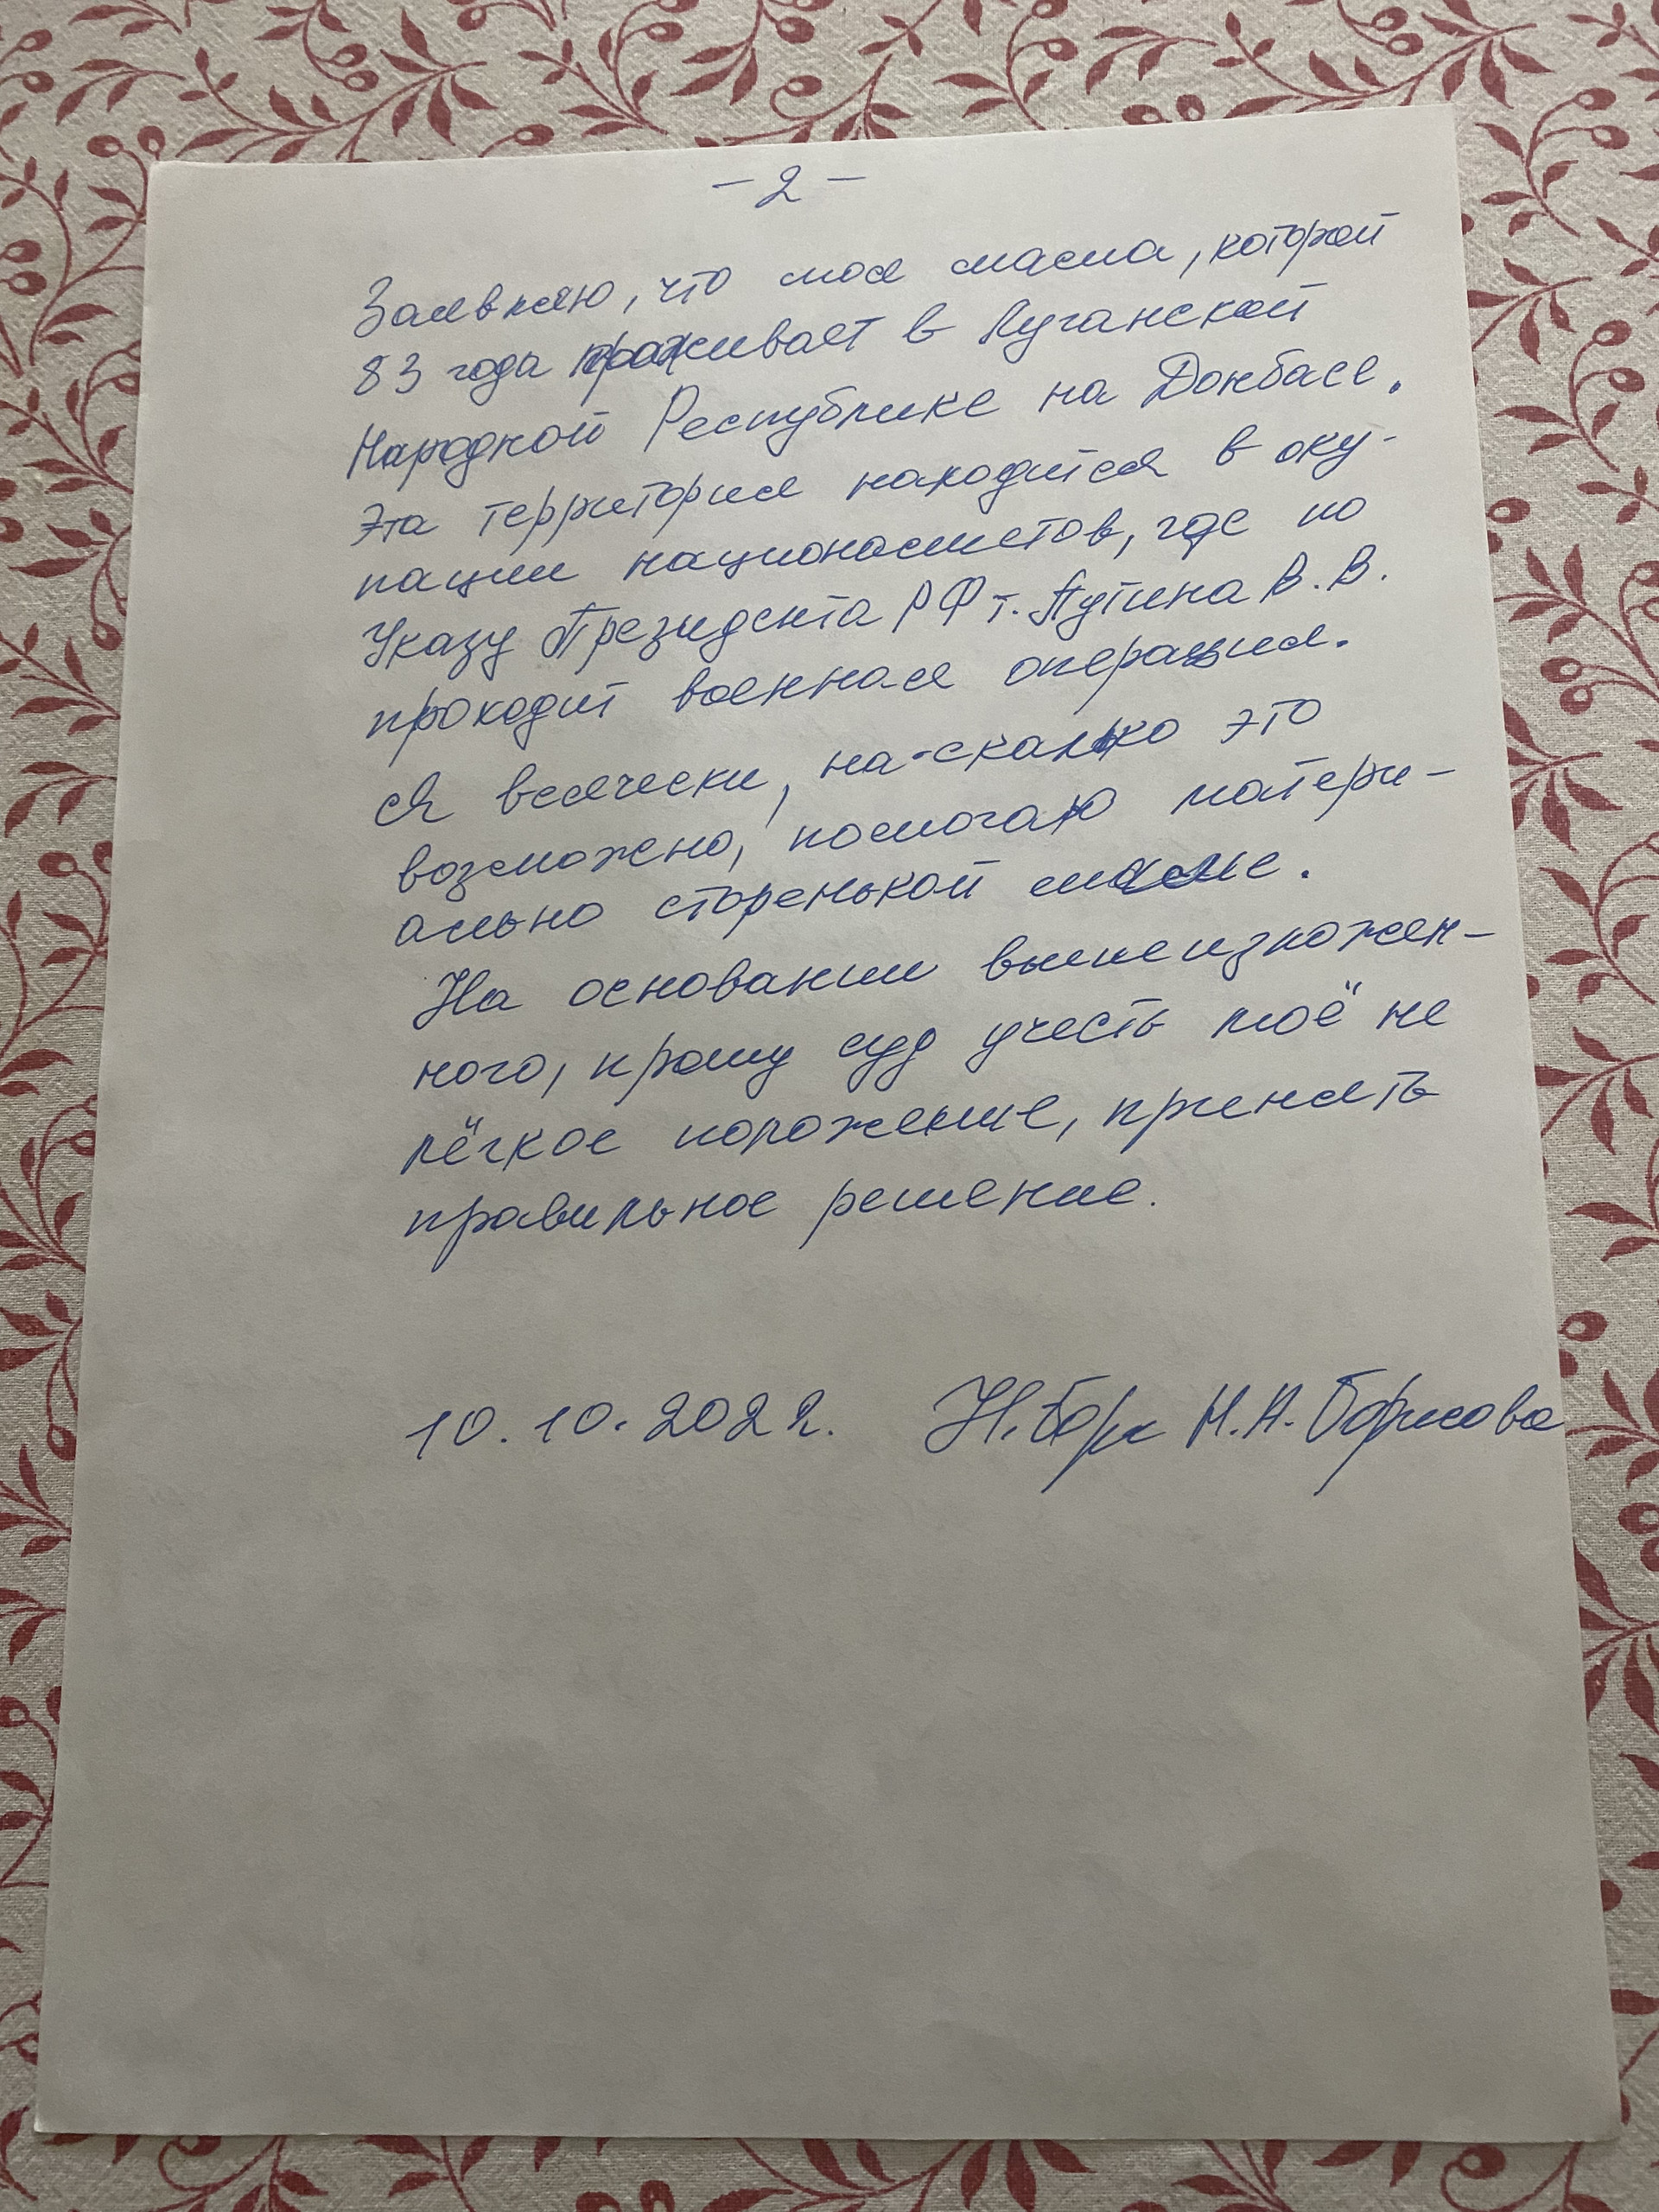 – 2 –
Заявляю, что моя мама, которой
83 года проживает в Луганской
Народной Республике на Донбасе.
Эта территория находится в оку-
пации националистов, где по
Указу Президента РФ т. Путина В. В.
проходит военная операция.
Я всячески, на-сколько это
возможно, помогаю матери-
ально старенькой маме.
На основании вышеизложен-
ного, прошу суд учесть моё не
лёгкое положение, принять
правильное решение.
10. 10. 2022. Н. Бор Н. А. Борисова